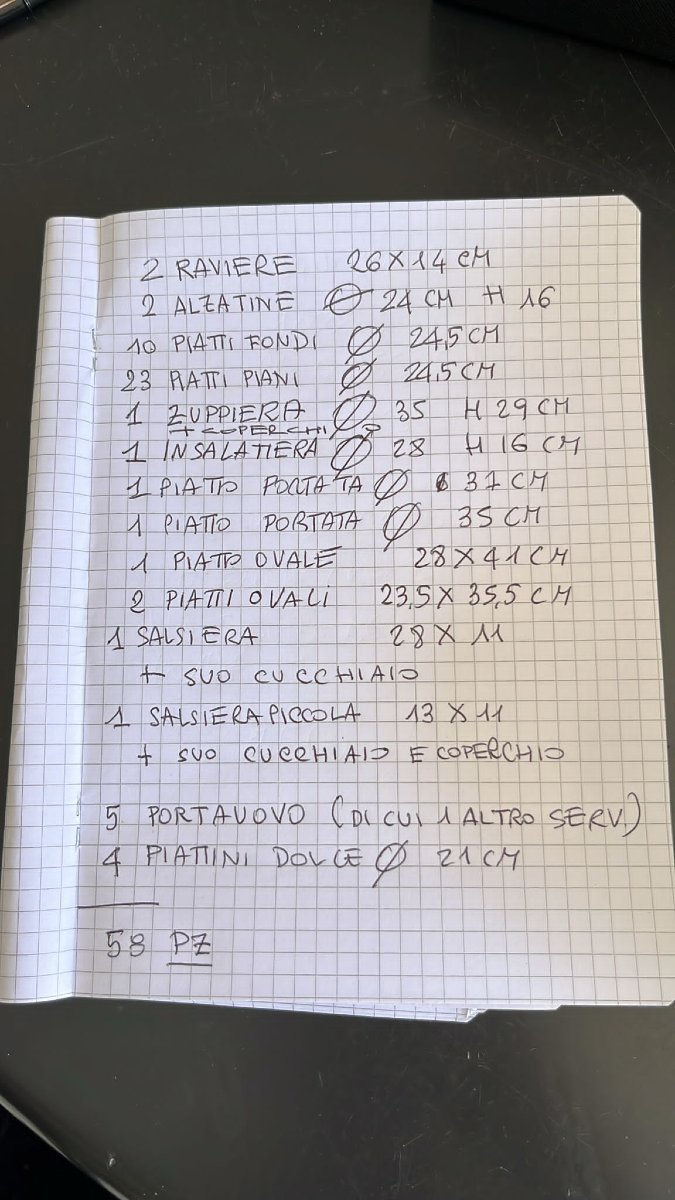 2 RAVIERE 26X14 CM
2 ALZATINE Ø 24 CM H 16
10 PIATTI FONDI Ø 24,5 CM
23 PIATTI PIANI Ø 24,5 CM
1 ZUPPIERA Ø 35 H 29 CM
+ COPERCHIO
1 INSALATIERA Ø 28 H 16 CM
1 PIATTO PORTATA Ø 37 CM
1 PIATTO PORTATA Ø 35 CM
1 PIATTO OVALE 28 X 41 CM
2 PIATTI OVALI 23,5 X 35,5 CM
1 SALSIERA 28 X 11
+ SUO CUCCHIAIO
1 SALSIERA PICCOLA 13 X 11
+ SUO CUCCHIAIO E COPERCHIO
5 PORTAUOVO (DI CUI 1 ALTRO SERV.)
4 PIATTINI DOLCE Ø 21 CM
58 PZ